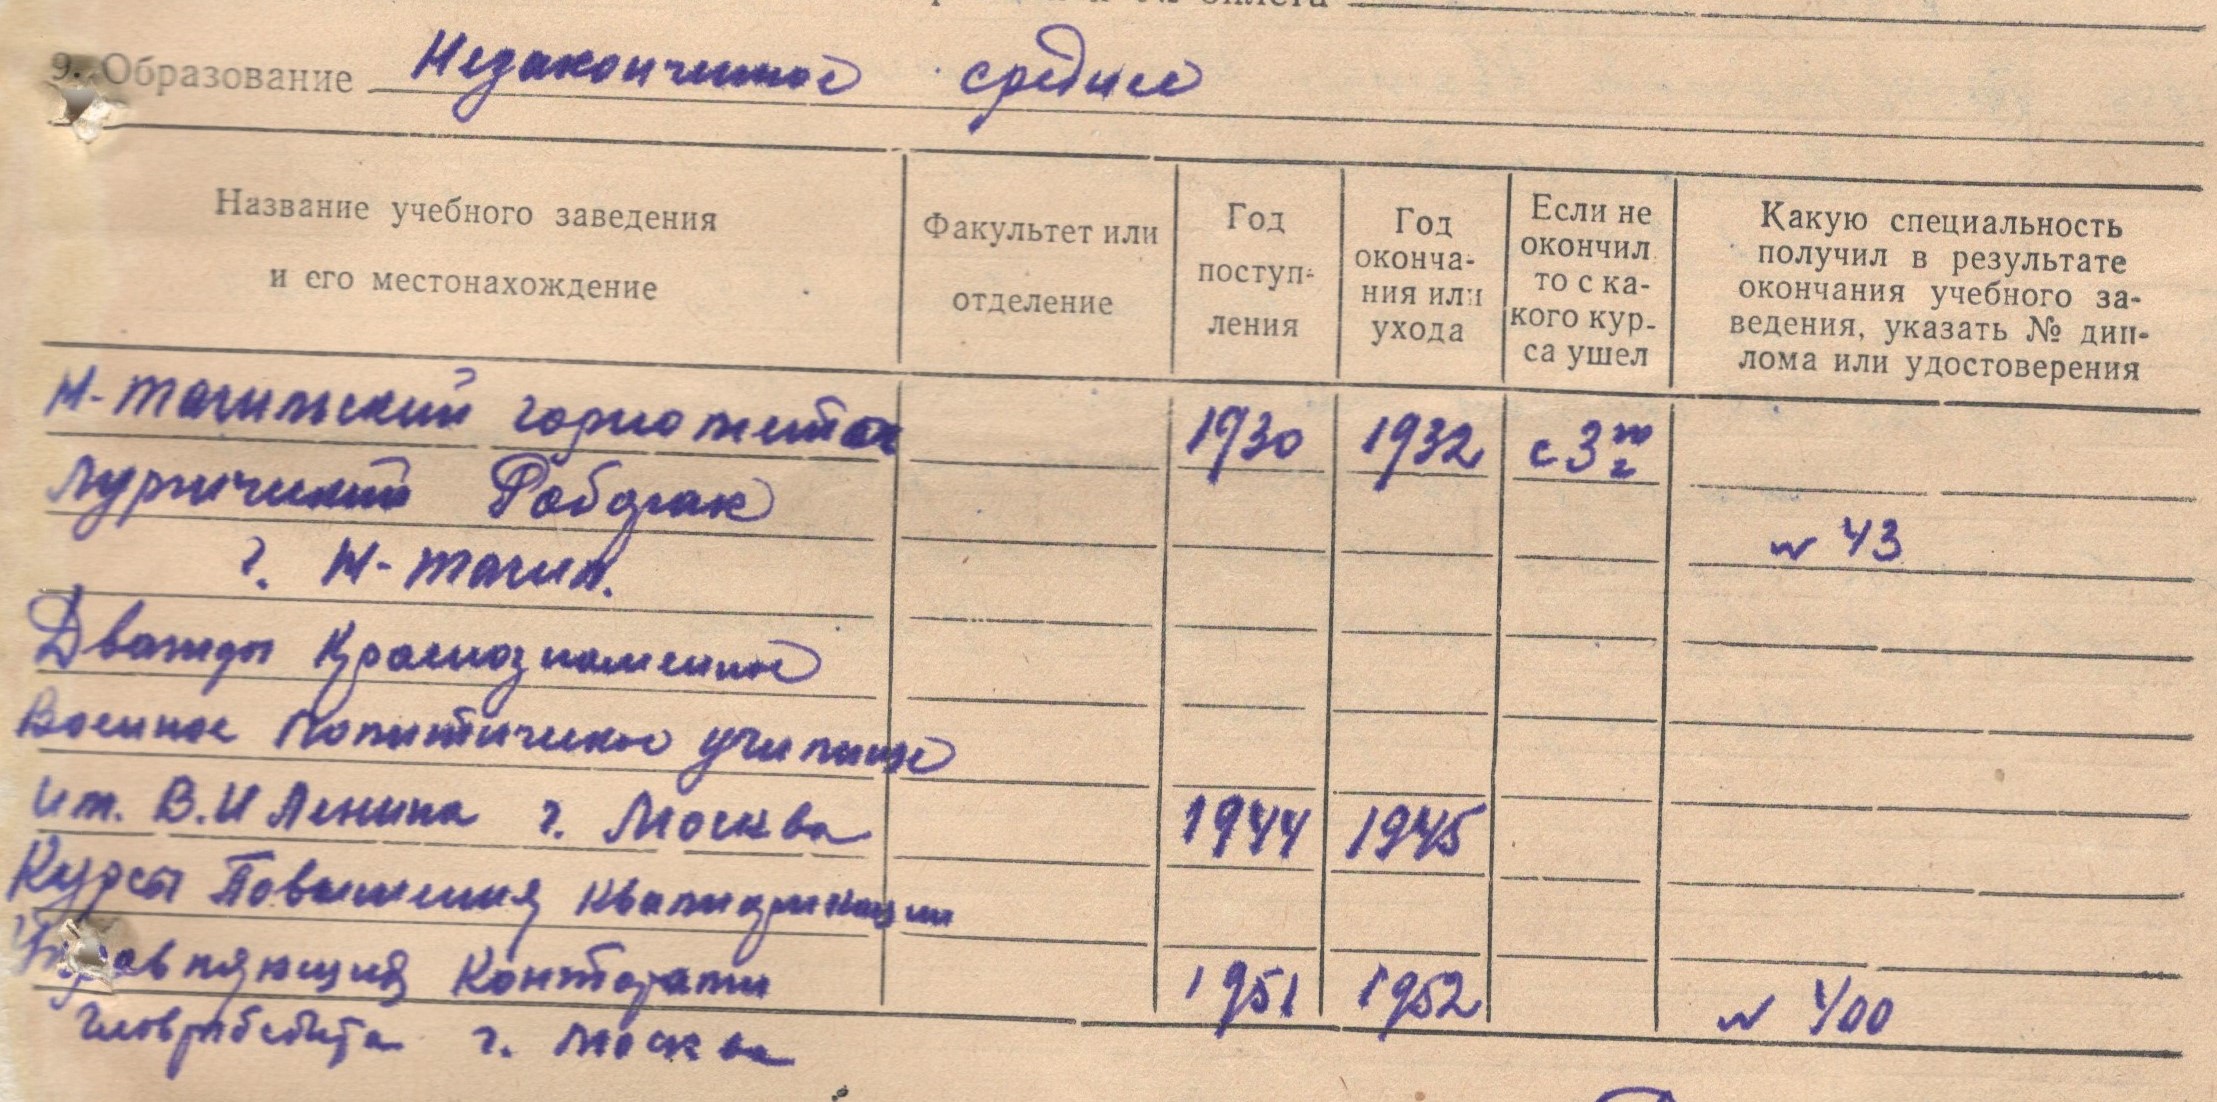 9. Образование Незаконченное среднее
Название учебного заведения
и его местонахождение
Факультет или
отделение
Год
поступ-
ления
Год
оконча-
ния или
ухода
Если не
окончил
то с ка-
кого кур-
са ушел
Какую специальность
получил в результате
окончания учебного за-
ведения, указать № дип-
лома или удостоверения
Н-Тагильский горно метал 1930 1932 с 3го
лургический Рабфак № 43
г. Н-Тагил.
Дважды Краснознаменное
Военное Политическое училище
им. В.И Ленина г. Москва 1944 1945
Курсы Повышения квалификации
Управляющий Конторами 1951 1952 № 400
Главрыбсбыта г. Москва